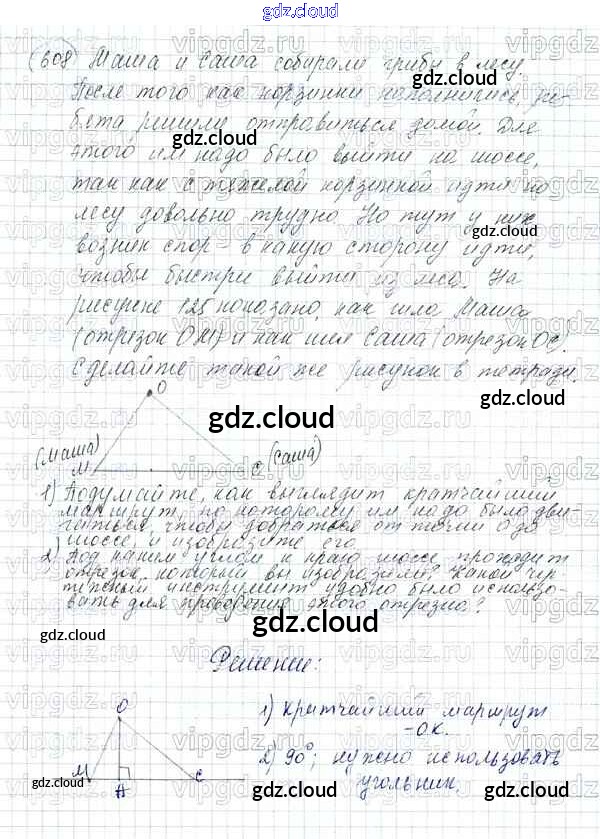 gdz.cloud
608 Маша и Саша собирали грибы в лесу.
После того как корзинки наполнились, ре-
бята решили отправиться домой. Для
этого им надо было выйти на шоссе,
так как с тяжелой корзинкой идти по
лесу довольно трудно. Но тут у них
возник спор - в какую сторону идти,
чтобы быстрее выйти из леса. На
рисунке 125 показано, как шла Маша
(отрезок ОМ) и как шел Саша (отрезок ОС).
Сделайте такой же рисунок в тетради.
О
(Маша) М С (Саша)
1) Подумайте, как выглядит кратчайший
маршрут, по которому им надо было дви-
гаться, чтобы добраться от точки О до
шоссе, и изобразите его.
2) Под каким углом к краю шоссе проходит
отрезок, который вы изобразили? Какой чер-
тежный инструмент удобно было использо-
вать для проведения этого отрезка?
Решение:
О
М Н С
1) Кратчайший маршрут
-ОК.
2) 90°; нужно использовать
угольник.